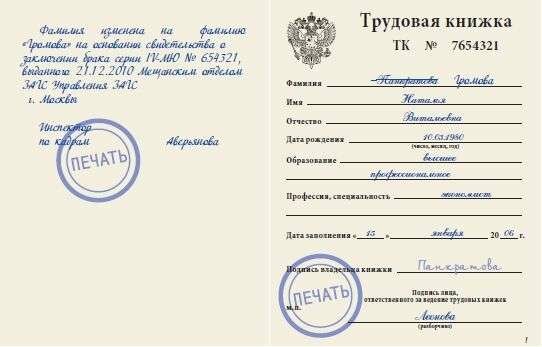 Фамилия изменена на фамилию
«Громова» на основании свидетельства о
заключении брака серии IV-МЮ № 654321,
выданного 21.12.2010 Мещанским отделом
ЗАГС Управления ЗАГС
г. Москвы
Инспектор
по кадрам Аверьянова
ПЕЧАТЬ
Трудовая книжка
ТК № 7654321
Фамилия Панкратова Громова
Имя Наталья
Отчество Витальевна
Дата рождения 10.03.1980
(число, месяц, год)
Образование высшее
профессиональное
Профессия, специальность экономист
Дата заполнения « 15 » января 20 06 г.
Подпись владельца книжки Панкратова
ПЕЧАТЬ
Подпись лица,
ответственного за ведение трудовых книжек
м.п.
Леонова
(разборчиво)
1